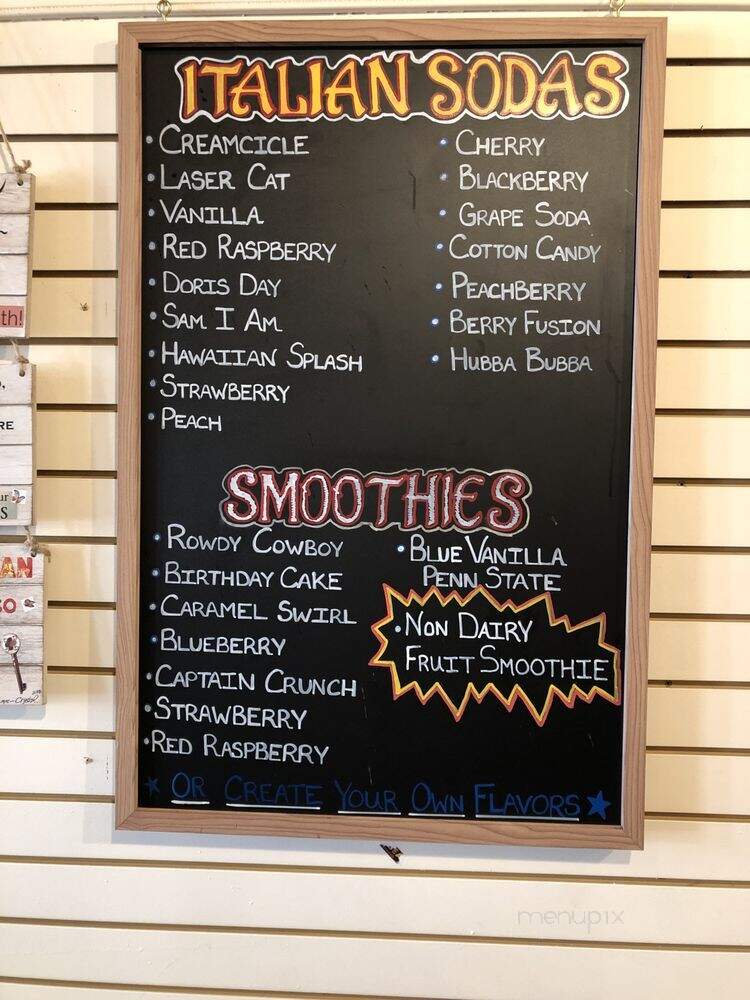 ITALIAN SODAS
• CREAMCICLE
• LASER CAT
• VANILLA
• RED RASPBERRY
• DORIS DAY
• SAM I AM
• HAWAIIAN SPLASH
• STRAWBERRY
• PEACH
• CHERRY
• BLACKBERRY
• GRAPE SODA
• COTTON CANDY
• PEACHBERRY
• BERRY FUSION
• HUBBA BUBBA
SMOOTHIES
• ROWDY COWBOY
• BIRTHDAY CAKE
• CARAMEL SWIRL
• BLUEBERRY
• CAPTAIN CRUNCH
• STRAWBERRY
• RED RASPBERRY
• BLUE VANILLA
PENN STATE
• NON DAIRY
FRUIT SMOOTHIE
★ OR CREATE YOUR OWN FLAVORS ★
th!
RE
ur
S
AN
menupix